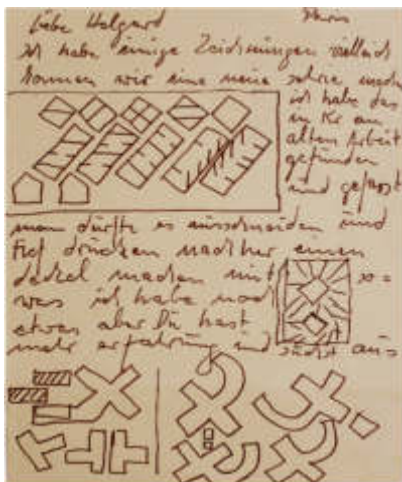 Liebe Helgard
ich habe einige Zeichnungen vielleich
können wir eine neue serie machen
ich habe das
in Kr an
alten Arbeit
gefunden
und gepasst
man dürfte es ausschneiden und
tief drücken nachher einen
deckel machen mit
was ich habe noch
etwas aber Du hast
mehr erfahrung und aus